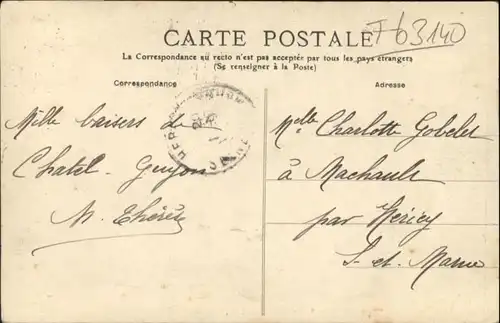 F 63140
CARTE POSTALE
La Correspondance au recto n'est pas acceptée par tous les pays étrangers
(Se renseigner à la Poste)
Correspondance
Adresse
Mille baisers de
Chatel-Guyon
M. Thérèse
Melle Charlotte Gobelet
à Machault
par Héricy
S. et. Marne